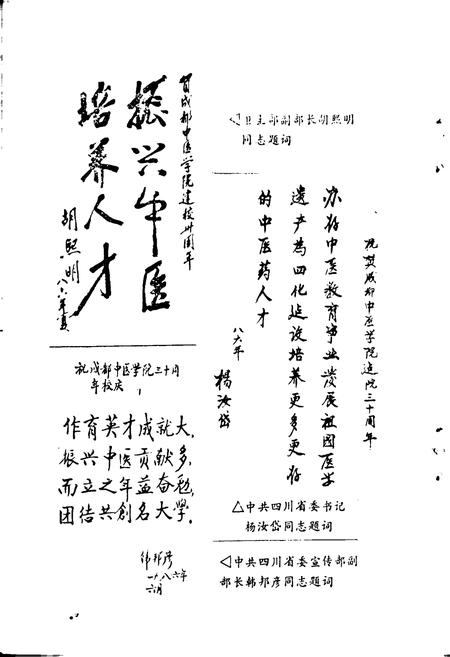 贺成都中医学院建校卅周年
振兴中医
培养人才
胡熙明
八六年夏
◁卫生部副部长胡熙明
同志题词
祝贺成都中医学院建院三十周年
办好中医教育事业发展祖国医学
遗产为四化建设培养更多更好
的中医药人才
八六年
杨汝岱
△中共四川省委书记
杨汝岱同志题词
祝成都中医学院三十周
年校庆
作育英才成就大,
振兴中医贡献多,
而立之年益奋勉,
团结共创名大学.
韩邦彦
一九八六年
六月
◁中共四川省委宣传部副
部长韩邦彦同志题词